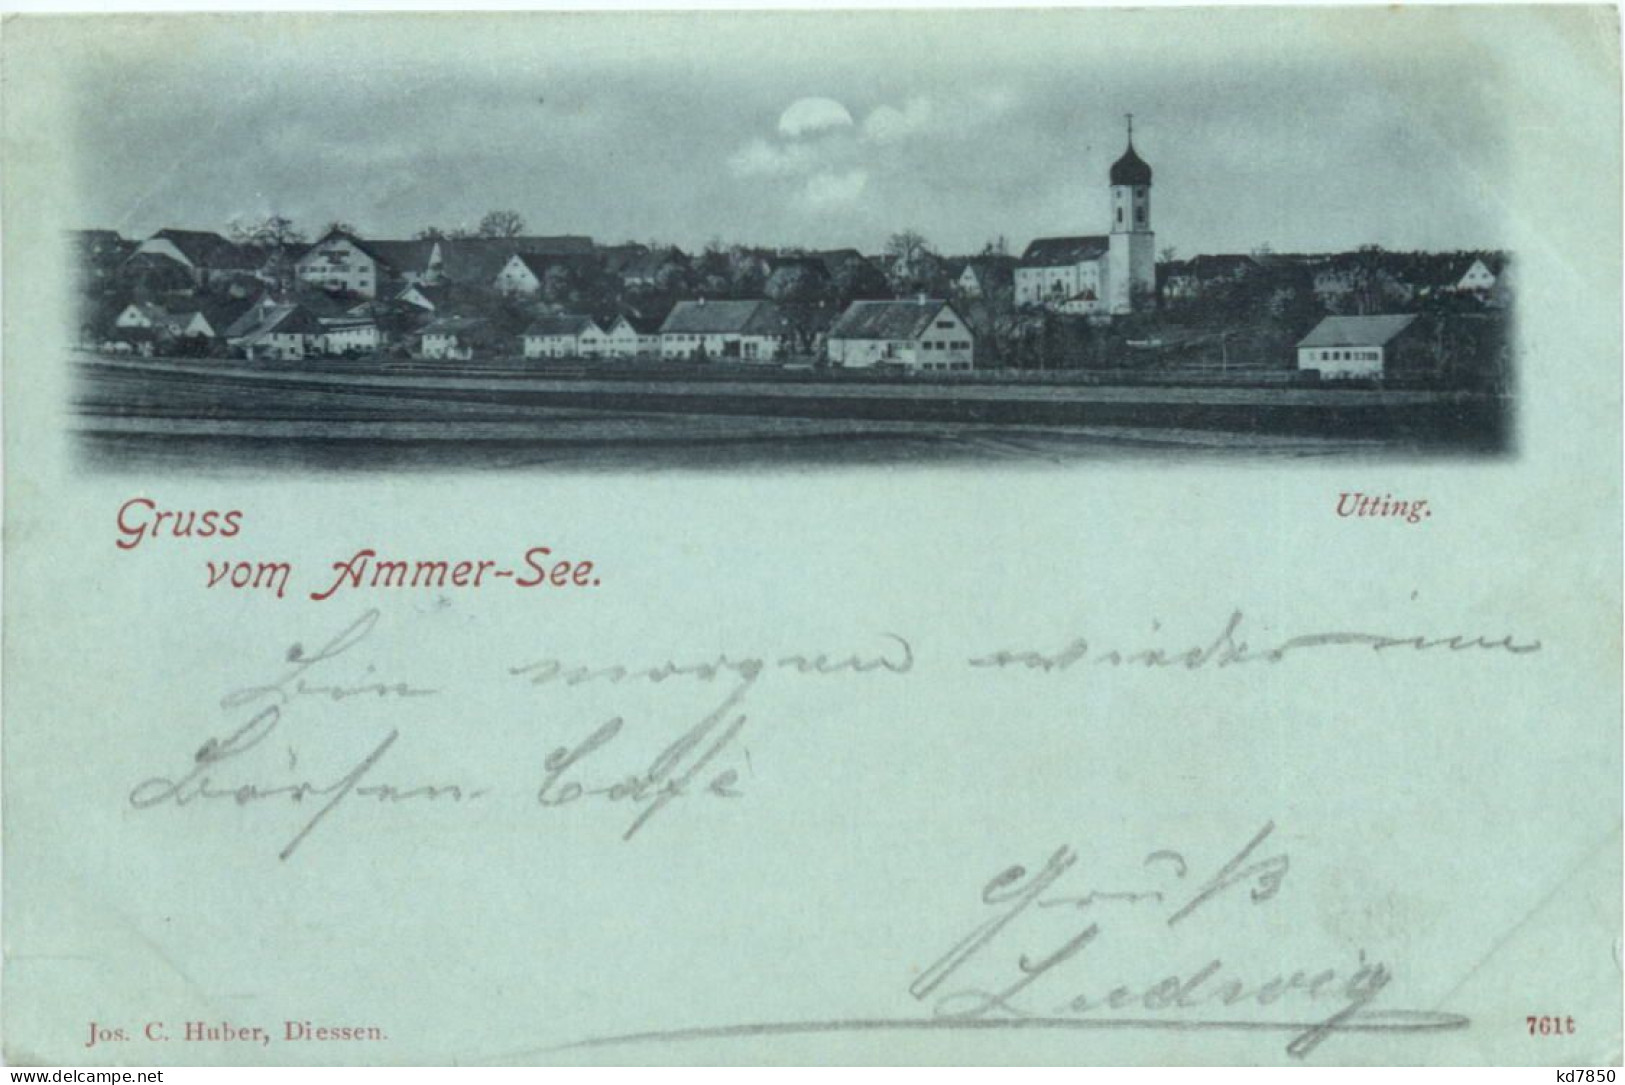 Utting.
Gruss
vom Ammer-See.
Bin morgen wieder im
Börsen Café
Gruß
Ludwig
Jos. C. Huber, Diessen.
761t
www.delcampe.net
kd7850